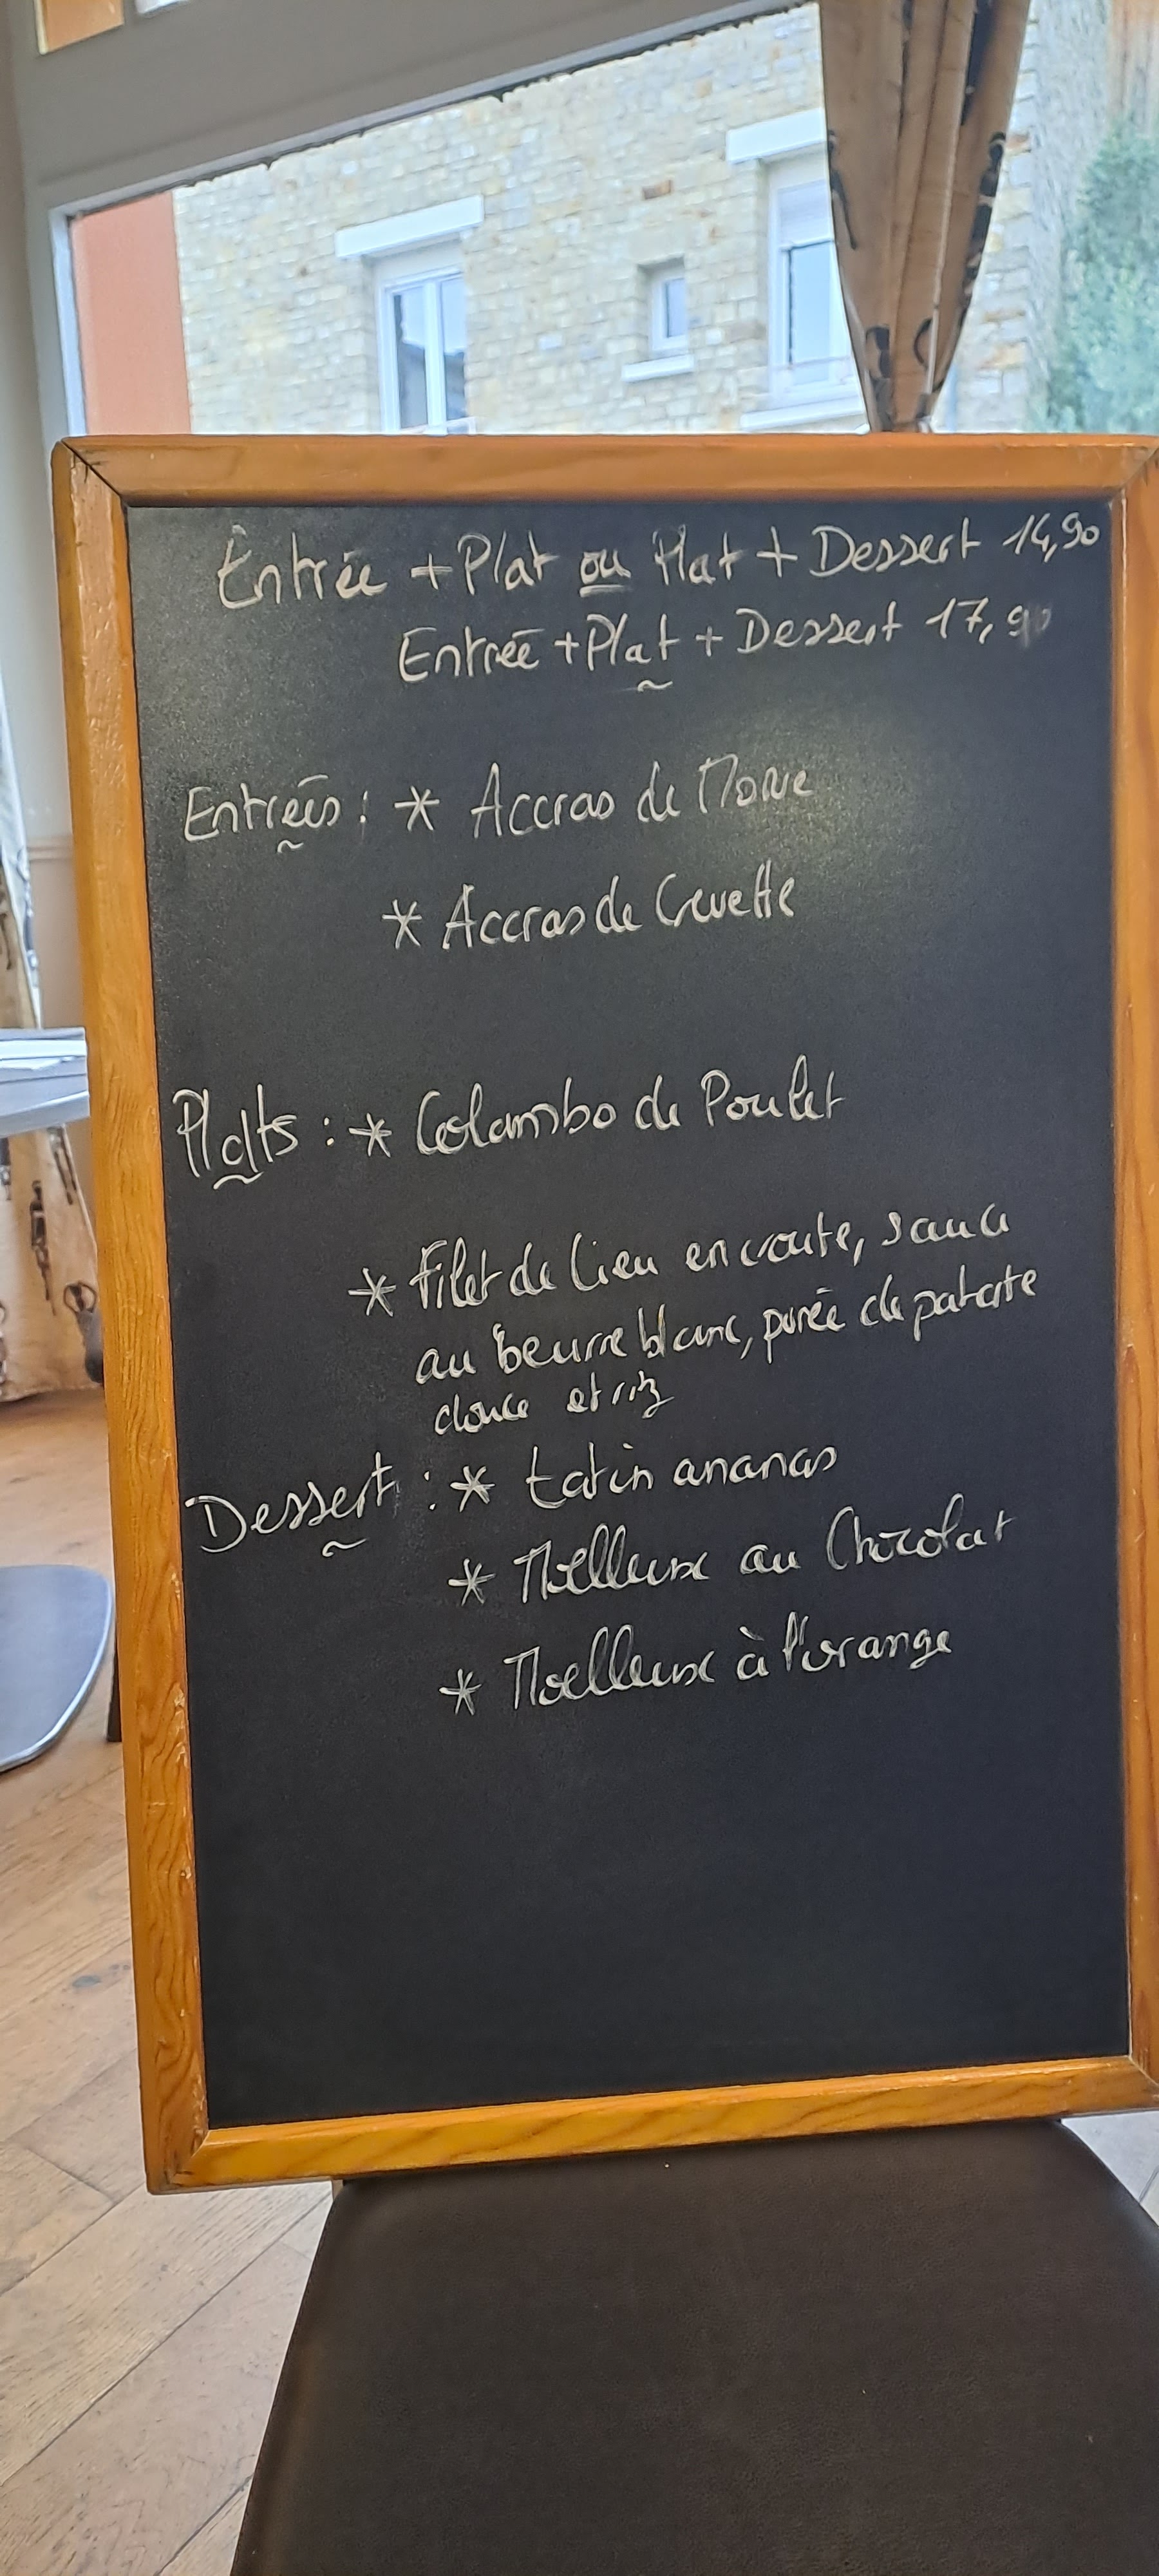 Entrée + Plat ou Plat + Dessert 14,90
Entrée + Plat + Dessert 17,90
Entrées : * Accras de Morue
* Accras de Crevette
Plats : * Colombo de Poulet
* Filet de lieu en croute, sauce
au beurre blanc, purée de patate
douce et riz
Dessert : * tatin ananas
* Moelleux au Chocolat
* Moelleux à l'orange